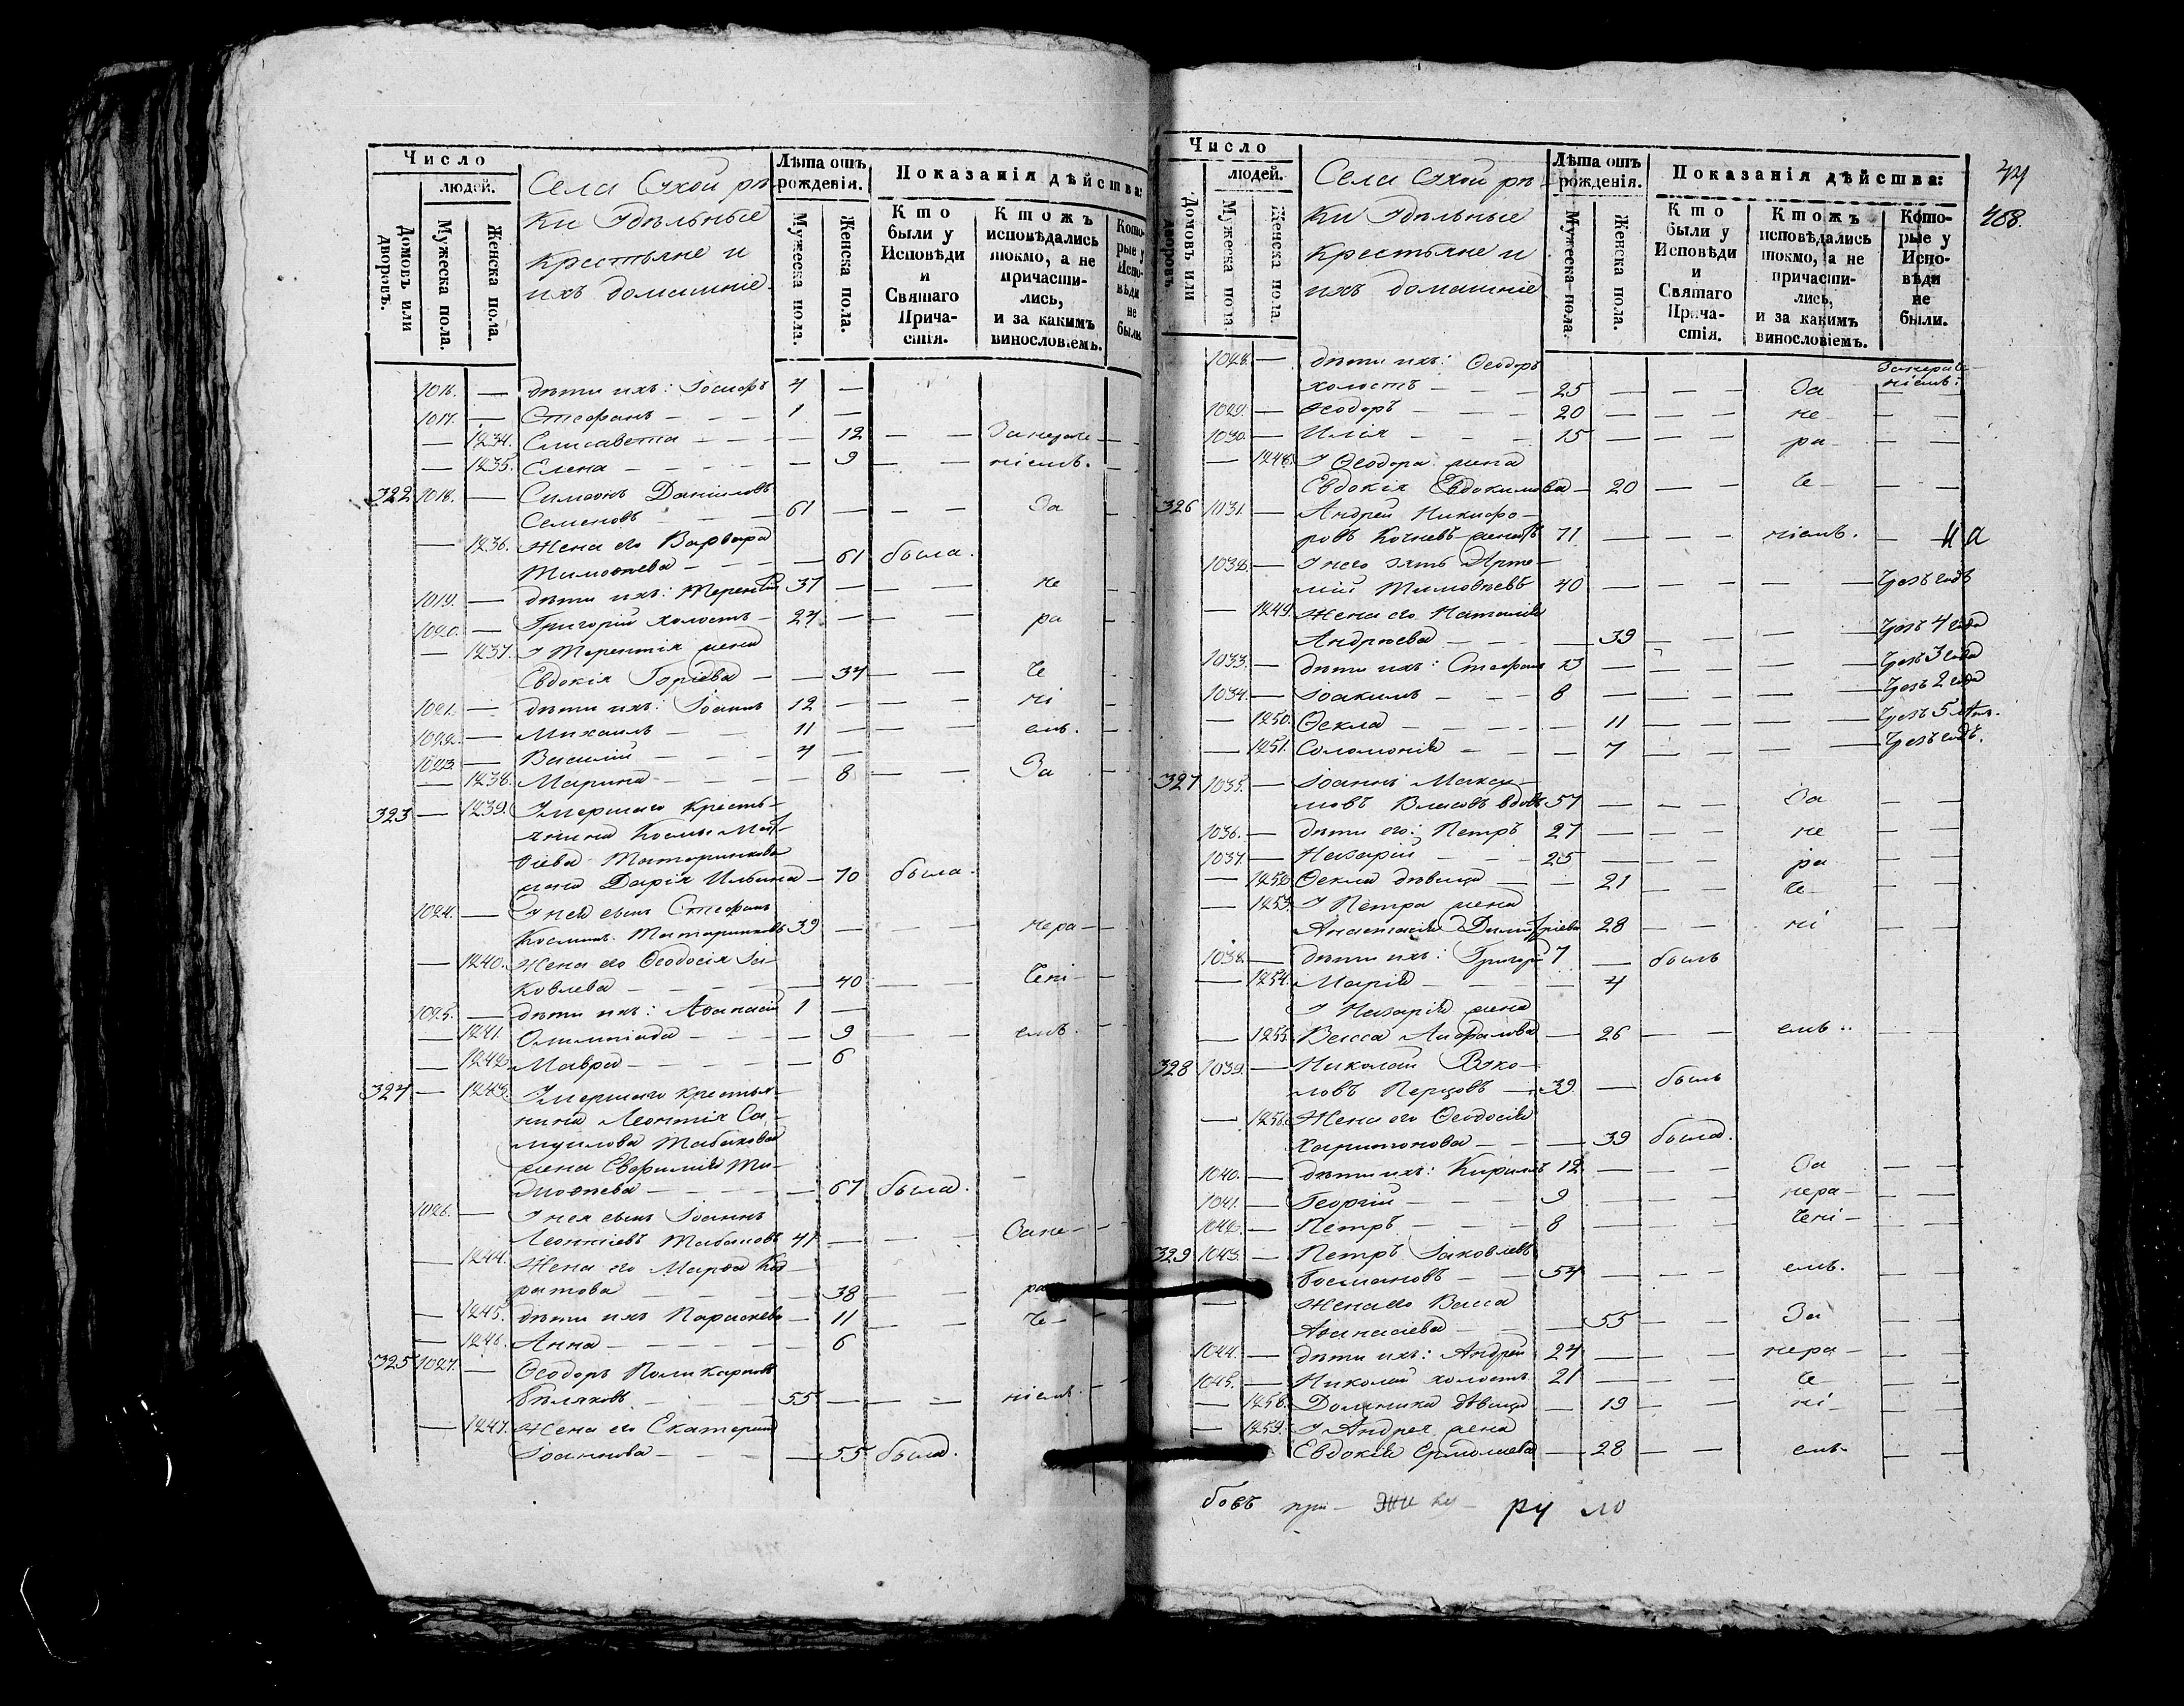 Число
людей.
Домовъ или дворовъ.
Мужеска пола.
Женска пола.
Села Сухой рѣ-
ки Удѣльные
крестьяне и
ихъ домашніе
Лѣта отъ рожденія.
Мужеска пола.
Женска пола.
Показанія дѣйства:
Кто были у Исповѣди и Святаго Причастія.
Ктожъ исповѣдались токмо, а не причастились, и за какимъ винословіемъ.
Которые у Исповѣди не были.
1016. — дѣти ихъ: Іосифъ 4 —
1017. — Стефанъ — — — 1 —
— 1234. Елисавета — — — — 12 — — Занераче —
— 1235. Елена — — — — — 9 — — ніемъ. —
322 1018. — Симеонъ Даніиловъ
Семеновъ — — — 61 — — — За —
— 1236. Жена его Варвара
Тимоѳеева — — — — 61 была.
1019. — дѣти ихъ: Терентій 37 — — не
1020. — Григорій холостъ — 27 — — — ра
— 1237. У Терентія жена
Евдокія Горіева — — 34 — — че
1021. — дѣти ихъ: Іоаннъ 12 — — — ні
1022. — Михаилъ — — 11 — — — емъ. —
1023. — Василій — — 4 —
— 1238. Марина — — — — 8 — — За —
323 — 1239. Умершаго кресть-
янина Космы Мат-
ѳіева Татаринкова
жена Дарія Ильина — 70 была.
1024. — У нея сынъ Стефанъ
Косминъ Татаринковъ 39 — — — нера —
— 1240. Жена его Ѳеодосія Іа-
ковлева — — — — 40 — — чені —
1025. — дѣти ихъ: Аѳанасій 1 —
— 1241. Олимпіада — — — — 9 — — емъ. —
— 1242. Мавра — — — — 6
324 — 1243. Умершаго крестья-
нина Леонтія Са-
муилова Табакова
жена Евфимія Ти-
моѳеева — — — — 67 была. —
1026. — У нея сынъ Іоаннъ
Леонтіевъ Табаковъ 41 — — — Зане —
— 1244. Жена его Марѳа Ко-
ратова — — — — 38 — — ра
— 1245. дѣти ихъ Параскева — 11 — — че —
— 1246. Анна — — — — 6
325 1027. — Ѳеодоръ Поликарповъ
Бѣляковъ — — — 55 — — — ніемъ. —
— 1247. Жена его Екатерина
Іоаннова — — — — 55 была.
Число
людей.
Домовъ или дворовъ.
Мужеска пола.
Женска пола.
Села Сухой рѣ-
ки Удѣльные
крестьяне и
ихъ домашніе
Лѣта отъ рожденія.
Мужеска пола.
Женска пола.
Показанія дѣйства:
Кто были у Исповѣди и Святаго Причастія.
Ктожъ исповѣдались токмо, а не причастились, и за какимъ винословіемъ.
Которые у Исповѣди не были.
468.
1028. — дѣти ихъ: Ѳеодоръ
холостъ — — 25 — — — За — —
1029. — Ѳеодоръ — — — 20 — — — не — —
1030. — Илія — — — 15 — — — ра — —
— 1248. У Ѳеодора жена
Евдокія Евдокимова — 20 — — че — —
326 1031. — Андрей Никифо-
ровъ Кочневъ женатъ 71 — — — ніемъ. — на
1032. — У него зять Арте-
мій Тимоѳеевъ 40 — — — — Чрезъ годъ
— 1249. Жена его Наталія
Андреева — — — 39 — — — Чрезъ 4 года
1033. — дѣти ихъ: Стефанъ 13 — — — Чрезъ 3 года
1034. — Іоакимъ — — — 8 — — — Чрезъ 2 года
— 1250. Ѳекла — — — — 11 — — — Чрезъ 5 лѣтъ.
— 1251. Соломонія — — — 7 — — — Чрезъ годъ.
327 1035. — Іоаннъ Макси-
мовъ Власовъ вдовъ 57 — — — За — —
1036. — дѣти его: Петръ 27 — — — не — —
1037. — Назарій — — — 25 — — — ра — —
— 1252. Ѳекла дѣвица — — 21 — — че — —
— 1253. У Петра жена
Анастасія Димитріева 28 — — ні — —
1038. — дѣти ихъ: Григорій 7 — былъ
— 1254. Марія — — — — 4
У Назарія жена
— 1255. Васса — 26 — — емъ. — —
328 1039. — Николай Вуко-
ловъ Перцовъ — 39 — былъ
— 1256. Жена его Ѳеодосія
Харитонова — — — 39 была.
1040. — дѣти ихъ: Кириллъ 12 — — — За — —
1041. — Георгій — — — 9 — — — нера — —
1042. — Петръ — — — 8 — — — чені — —
329 1043. — Петръ Іаковлевъ
— — 54 — — — емъ. — —
— Жена его Васса
Аѳанасіева — — — 55 — — За — —
1044. — дѣти ихъ: Андрей 24 — — — нера — —
1045. — Николай холостъ 21 — — — че — —
— 1258. Домника дѣвица — 19 — — ні — —
— 1259. У Андрея жена
Евдокія Ермолаева — 28 — — емъ — —
бовъ при — ру ло